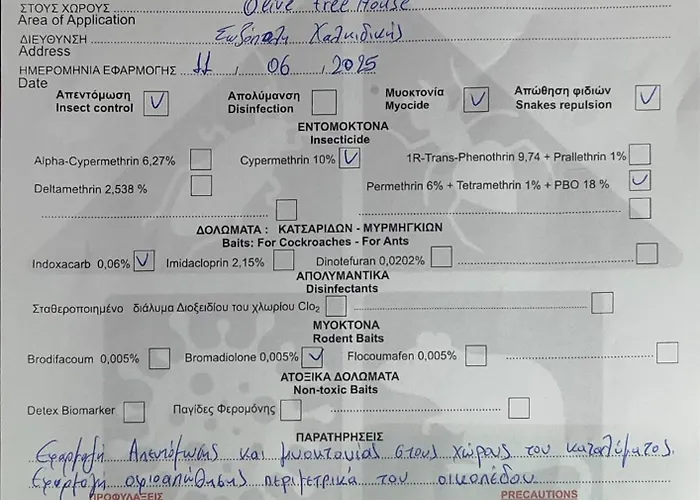 ΣΤΟΥΣ ΧΩΡΟΥΣ Olive Tree House
Area of Application
ΔΙΕΥΘΥΝΣΗ Σωζόπολη Χαλκιδικής
Address
ΗΜΕΡΟΜΗΝΙΑ ΕΦΑΡΜΟΓΗΣ 11 , 06 , 2025
Date
Απεντόμωση Απολύμανση Μυοκτονία Απώθηση φιδιών
Insect control Disinfection Myocide Snakes repulsion
ΕΝΤΟΜΟΚΤΟΝΑ
Insecticide
Alpha-Cypermethrin 6,27% Cypermethrin 10% 1R-Trans-Phenothrin 9,74 + Prallethrin 1%
Deltamethrin 2,538 % Permethrin 6% + Tetramethrin 1% + PBO 18 %
ΔΟΛΩΜΑΤΑ : ΚΑΤΣΑΡΙΔΩΝ - ΜΥΡΜΗΓΚΙΩΝ
Baits: For Cockroaches - For Ants
Indoxacarb 0,06% Imidacloprin 2,15% Dinotefuran 0,0202%
ΑΠΟΛΥΜΑΝΤΙΚΑ
Disinfectants
Σταθεροποιημένο διάλυμα Διοξειδίου του χλωρίου Clo2
ΜΥΟΚΤΟΝΑ
Rodent Baits
Brodifacoum 0,005% Bromadiolone 0,005% Flocoumafen 0,005%
ΑΤΟΞΙΚΑ ΔΟΛΩΜΑΤΑ
Non-toxic Baits
Detex Biomarker Παγίδες Φερομόνης
ΠΑΡΑΤΗΡΗΣΕΙΣ
Εφαρμογή Απεντόμωσης και μυοκτονίας στους χώρους του καταλύματος.
Εφαρμογή οφιοαπώθησης περιμετρικά του οικοπέδου.
ΠΡΟΦΥΛΑΞΕΙΣ PRECAUTIONS